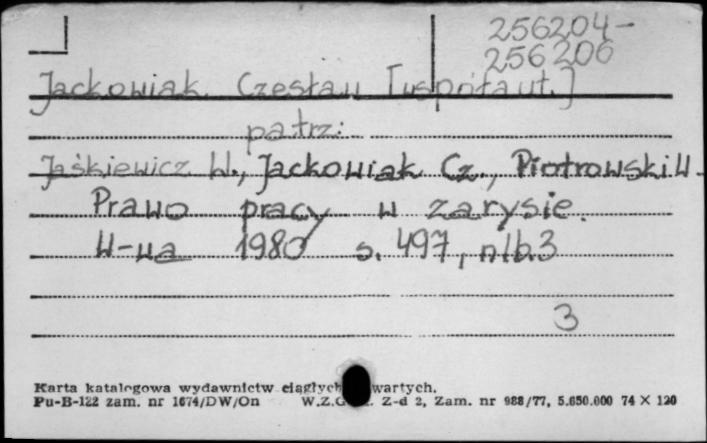 256204-
256206
Jackowiak Czesław [współaut.]
patrz:
Jaśkiewicz W., Jackowiak Cz., Piotrowski W.
Prawo pracy w zarysie.
W-wa 1980 s. 497, nlb. 3
3
Karta katalogowa wydawnictw ciągłych wartych.
Pu-B-122 zam. nr 1674/DW/On W.Z.G Z-d 2, Zam. nr 988/77, 5.650.000 74 X 120